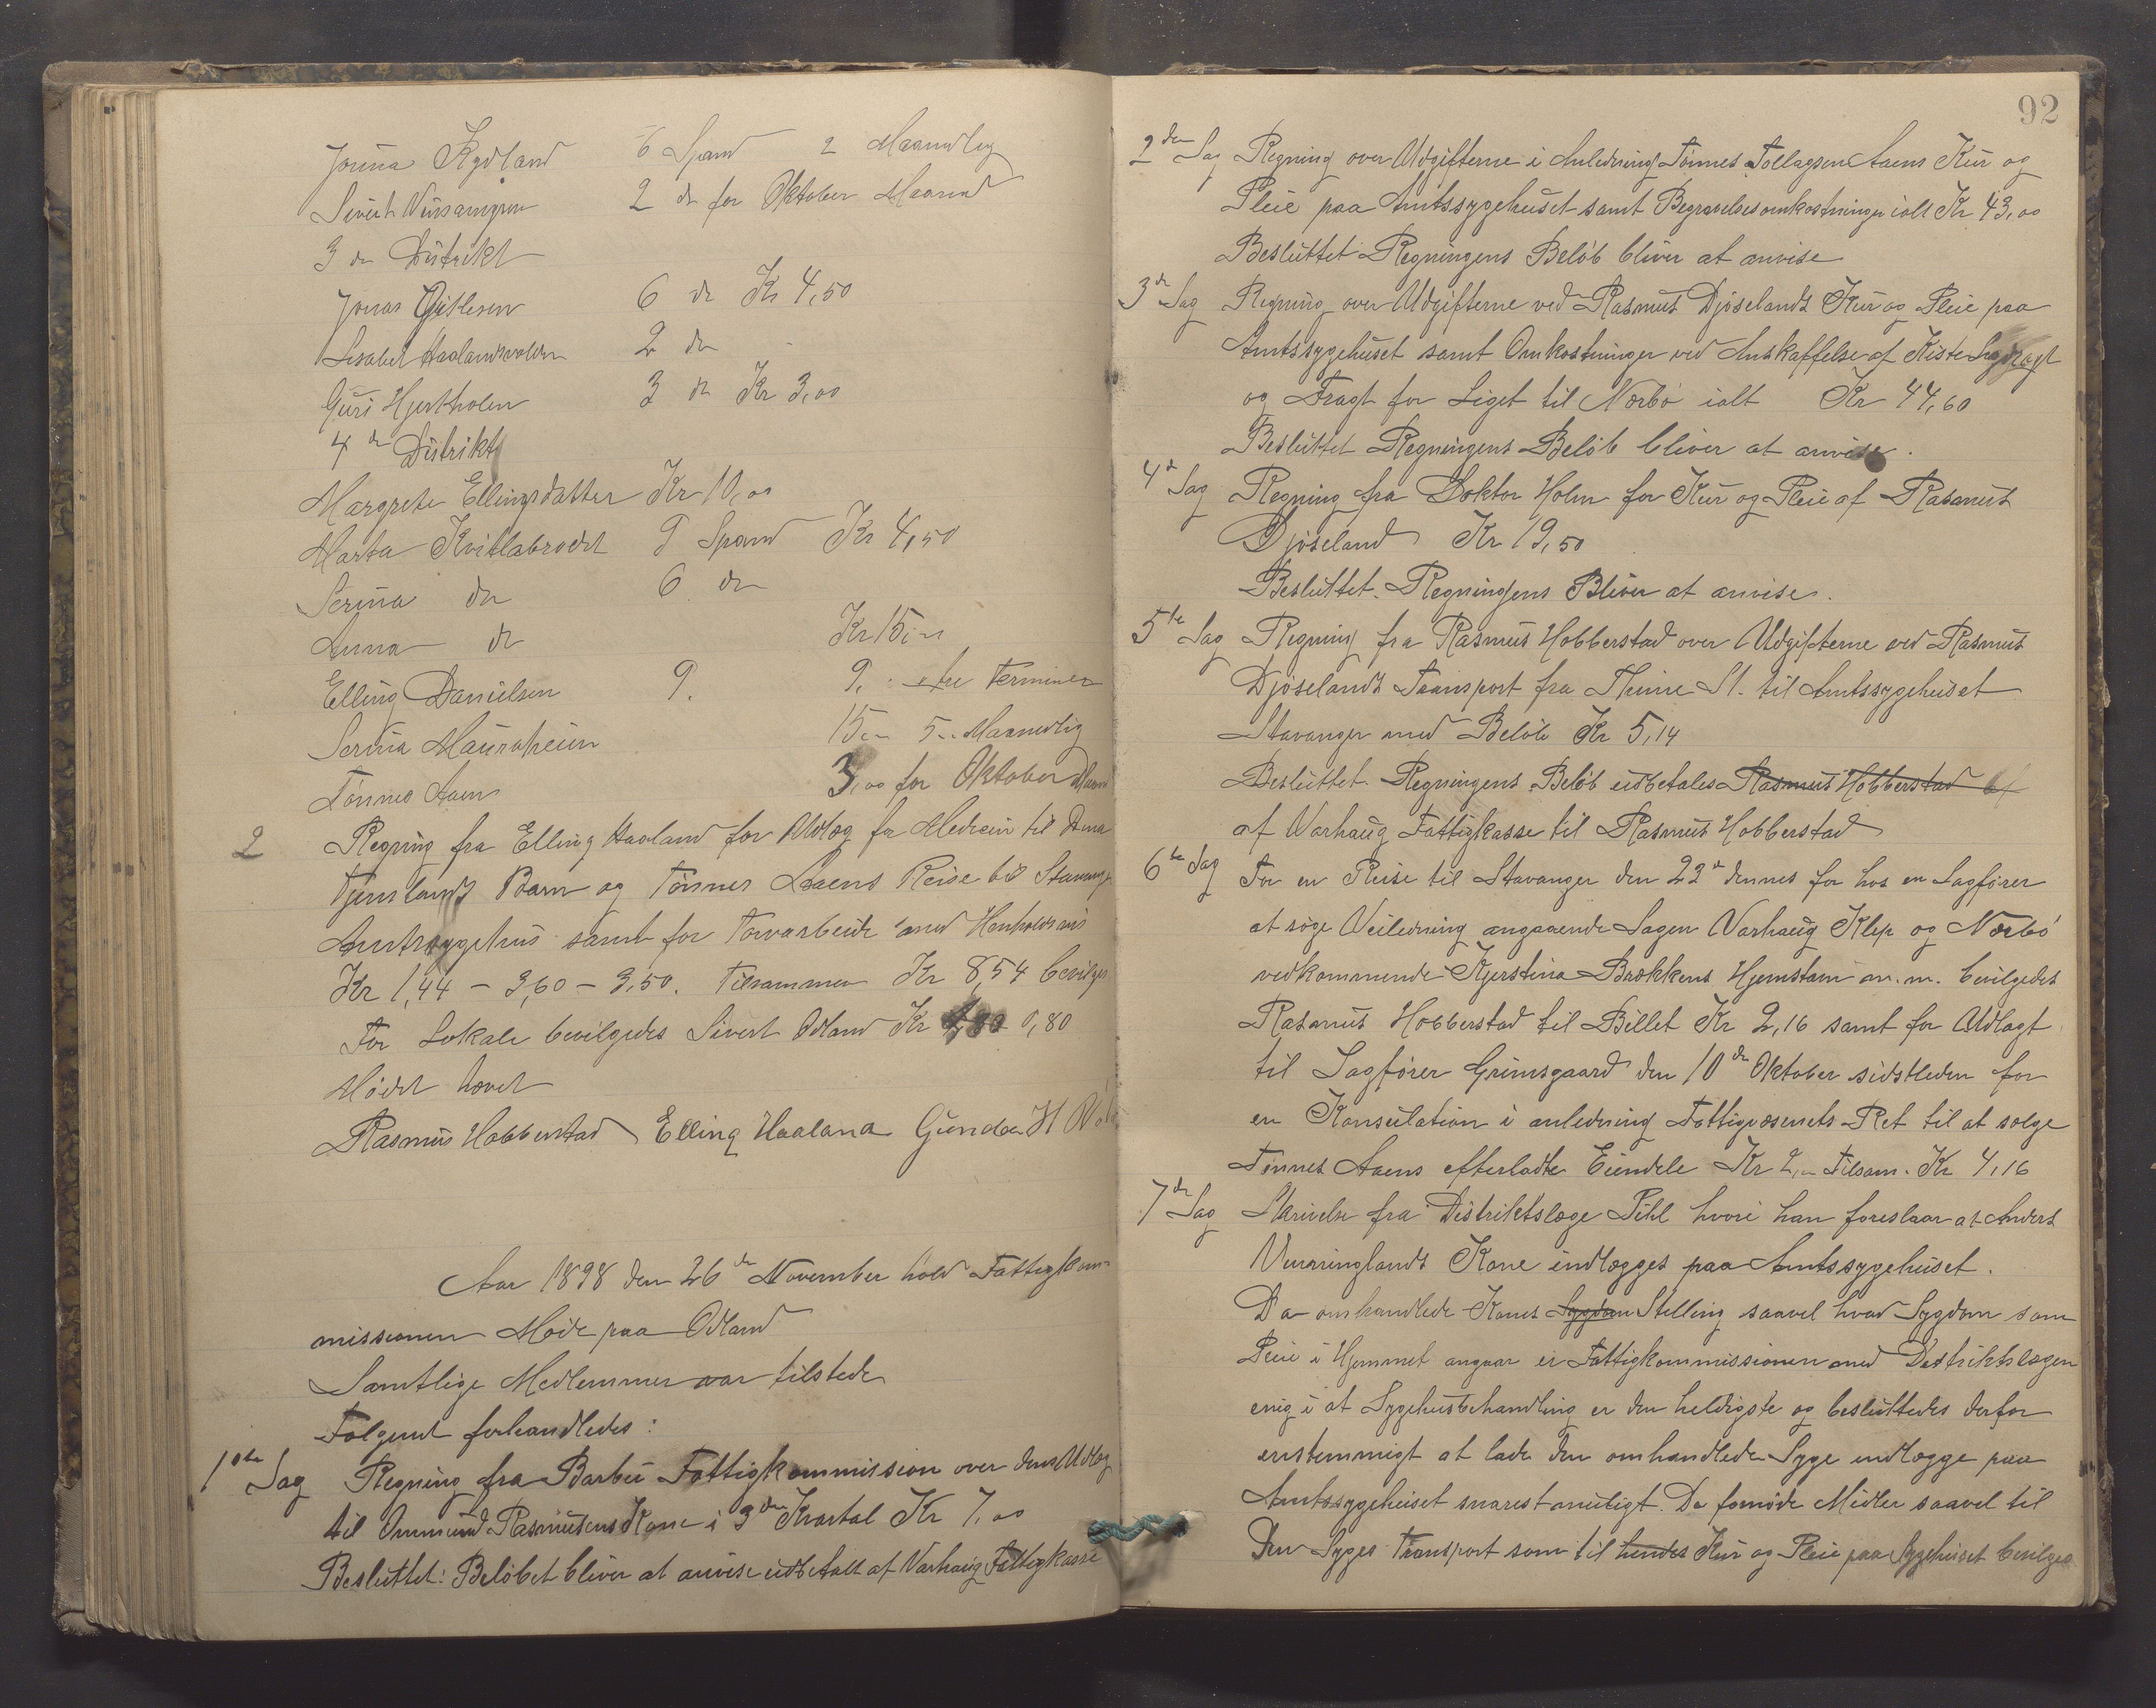 Jorina Rydland 6 Spand 2 Maanedlig
Sivert 2 do for Oktober Maaned
3de Distrikt
Jonas Gitlesen 6 do Kr 4,50
Lisabet Haalandsvolden 2 do
Guri Hjertholen 3 do Kr 3,00
4de Distrikt
Margrete Ellingsdatter Kr 10,00
Marta Kvitlabrodet 9 Spand Kr 4,50
Serina do 6 do
Anna do Kr 15,"
Elling Danielsen 9. 9, " Terminer
Serina Mauraheim 15," 5," Maanedlig
Tønnes Aaen 3,00 for Oktober Maaned
2 Regning fra Elling Haaland for Udlæg for Medicin til
Barn og Tønnes Aaens Reise til Stavanger
Amtssygehus samt for Torvarbeide med Henholdsvis
Kr 1,44 – 3,60 – 3,50. Tilsammen Kr 8,54 bevilges
For Lokale bevilgedes Sivert Odland Kr 0,80
Mødet hævet
Rasmus Hobberstad Elling Haaland Gunder H
Aar 1898 den 26de November holdt Fattigkom-
missionen Møde paa Odland
Samtlige Medlemmer var tilstede
Følgend forhandledes:
1ste Sag Regning fra Barbu Fattigkommission over dens Udlæg
til Ommund Rasmusens Kone i 3die Kvartal Kr 7,00
Besluttet: Beløbet bliver at anvise udbetalt af Varhaug Fattigkasse
92
2den Sag Regning over Udgifterne i Anledning Tønnes Tollagsen Aaens Kur og
Pleie paa Amtssygehuset samt Begravelsesomkostninger ialt Kr 43,00
Besluttet Regningens Beløb bliver at anvise
3de Sag Regning over Udgifterne ved Rasmus Djøselands Kur og Pleie paa
Amtssygehuset samt Omkostninger ved Anskaffelse af Kiste Ligdragt
og Fragt for Liget til Nærbø ialt Kr 44,60
Besluttet Regningens Beløb bliver at anvise.
4de Sag Regning fra Doktor Holm for Kur og Pleie af Rasmus
Djøseland Kr 19,50
Besluttet. Regningens Bliver at anvise.
5te Sag Regning fra Rasmus Hobberstad over Udgifterne ved Rasmus
Djøselands Transport fra Thime St. til Amtssygehuset
Stavanger med Beløb Kr 5,14
Besluttet Regningens Beløb udbetales Rasmus Hobberstad
af Varhaug Fattigkasse til Rasmus Hobberstad
6te Sag For en Reise til Stavanger den 22de dennes for hos en Sagfører
at søge Veiledning angaaende Sagen Varhaug Klep og Nærbø
vedkommende Kjerstina Brækkens Hjemstavn m.m. bevilgedes
Rasmus Hobberstad til Billet Kr 2,16 samt for Udlagt
til Sagfører Grimsgaard den 10de Oktober sidstleden for
en Konsulation i anledning Fattigvæsenets Ret til at sælge
Tønnes Aaens efterladte Eiendele Kr 2,– Tilsam. Kr 4,16
7de Sag Skrivelse fra Distriktslæge Pihl hvori han foreslaar at Anders
Varringlands Kone indlægges paa Amtssygehuset.
Da omhandlede Kones Sygdom Stilling saavel hvad Sygdom som
Pleie i Hjemmet angaar er Fattigkommissionen med Distriktslægen
enig i at Sygehusbehandling er den heldigste og besluttedes derfor
enstemmigt at lade den omhandlede Syge indlægge paa
Amtssygehuset snarest muligt. De fornøde Midler saavel til
Den Syges Transport som til hendes Kur og Pleie paa Sygehuset bevilges